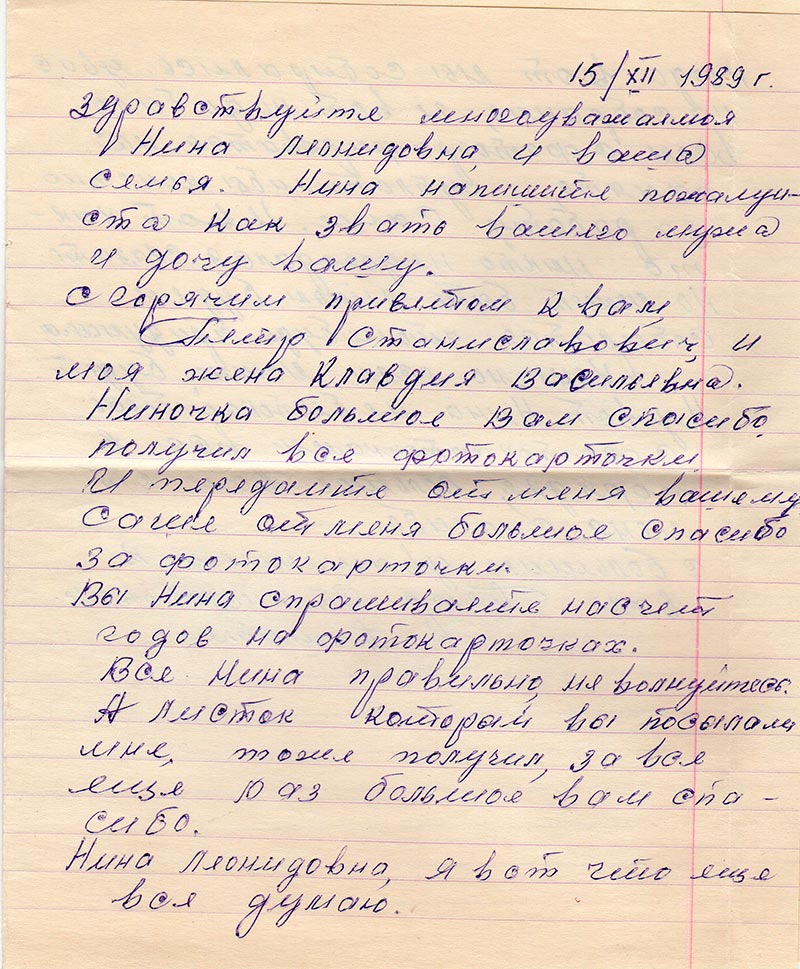 15/XII 1989 г.
Здравствуйте многоуважаемая
Нина Леонидовна и ваша
семья. Нина напишите пожалуй-
ста как звать вашего мужа
и дочу вашу.
С горячим приветом к вам
Петр Станиславович, и
моя жена Клавдия Васильевна.
Ниночка большое Вам спасибо,
получил все фотокарточки.
И передайте от меня вашему
Саше от меня большое спасибо
за фотокарточки.
Вы Нина спрашиваете насчет
годов на фотокарточках.
Все Нина правильно, не волнуйтесь.
А листок который вы посылали
мне, тоже получил, за все
еще раз большое вам спа-
сибо.
Нина Леонидовна, я вот что еще
все думаю.